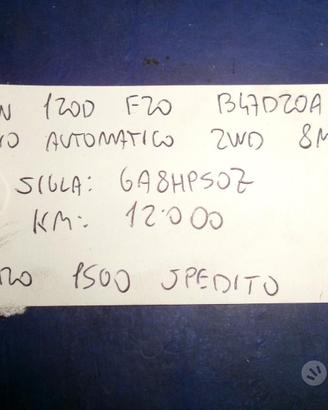 N 120D F20 B47D20A
O AUTOMATICO 2WD 8M
SIGLA: GA8HP50Z
KM: 12.000
ZO 1500 SPEDITO